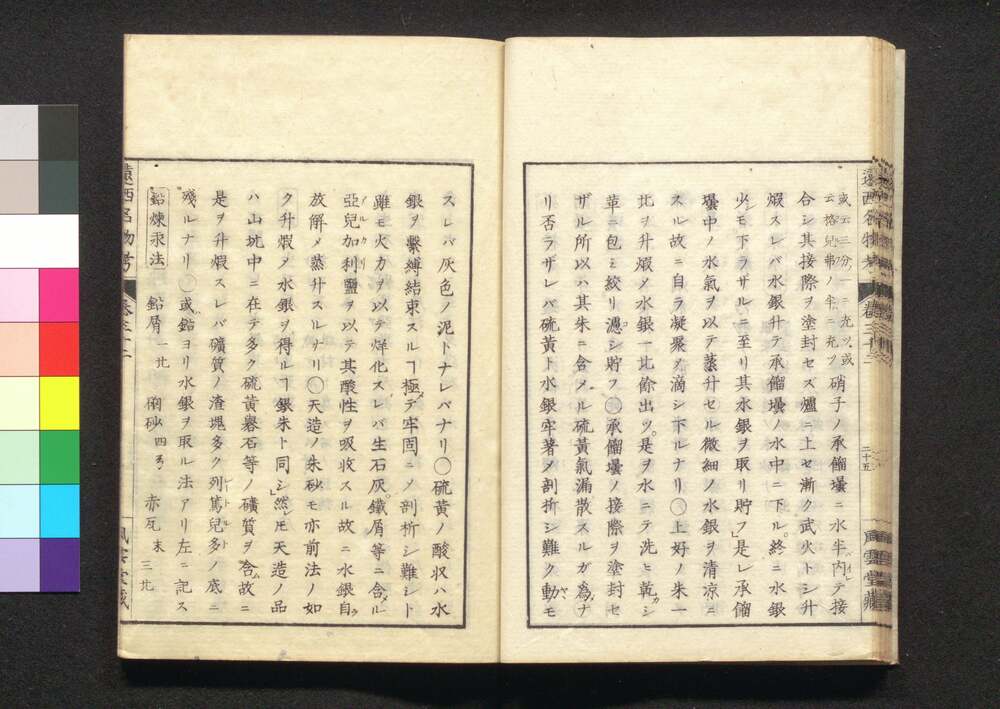 遠西名物考 卷三十二 二十五 風雲堂藏
或ハ三分ノ一ニ充ツ或
云格兒弗ノ半ニ充ツ
硝子ノ承㽞壜ニ水半内レテ接
合シ其接際ヲ塗封セズ爐ニ上セ漸ク武火トシ升
煆スレバ水銀升テ承㽞壜ノ水中ニ下ル終ニ水銀
少モ下ラザルニ至リ其水銀ヲ取リ貯フ是レ承㽞
壜中ノ水氣ヲ以テ蒸升セル微細ノ水銀ヲ清凉ニ
スル故ニ自ラ凝聚ノ滴シ下ルナリ〇上好ノ朱一
比ヲ升煆メ水銀一比餘出ツ是ヲ水ニテ洗ヒ乾シ
革ニ包ミ絞リ濾シ貯フ〇承㽞壜ノ接際ヲ塗封セ
ザル所以ハ其朱ニ含メル硫黄氣漏散スルガ為ナ
リ否ラザレバ硫黄ト水銀牢著メ剖析シ難ク動モ
スレバ灰色ノ泥トナレバナリ〇硫黄ノ酸収ハ水
銀ヲ繋縛結束スルヿ極テ牢固ニメ剖析シ難シト
雖モ火力ヲ以テ烊化スレバ生石灰鐵屑等ニ合ル
亞兒加利鹽ヲ以テ其酸性ヲ吸收スル故ニ水銀自ラ
放解メ蒸升スルナリ〇天造ノ朱砂モ亦前法ノ如
ク升煆メ水銀ヲ得ルヿ銀朱ト同シ然レ𪜈天造ノ品
ハ山坑中ニ在テ多ク硫黄礜石等ノ礦質ヲ含故ニ
是ヲ升煆スレバ礦質ノ渣塊多ク列篤兒多ノ底ニ
殘ルナリ〇或鉛ヨリ水銀ヲ取ル法アリ左ニ記ス
鉛煉汞法 鉛屑一比 硇砂四弓 赤瓦末三比
遠西名物考 卷三十二 風雲堂藏